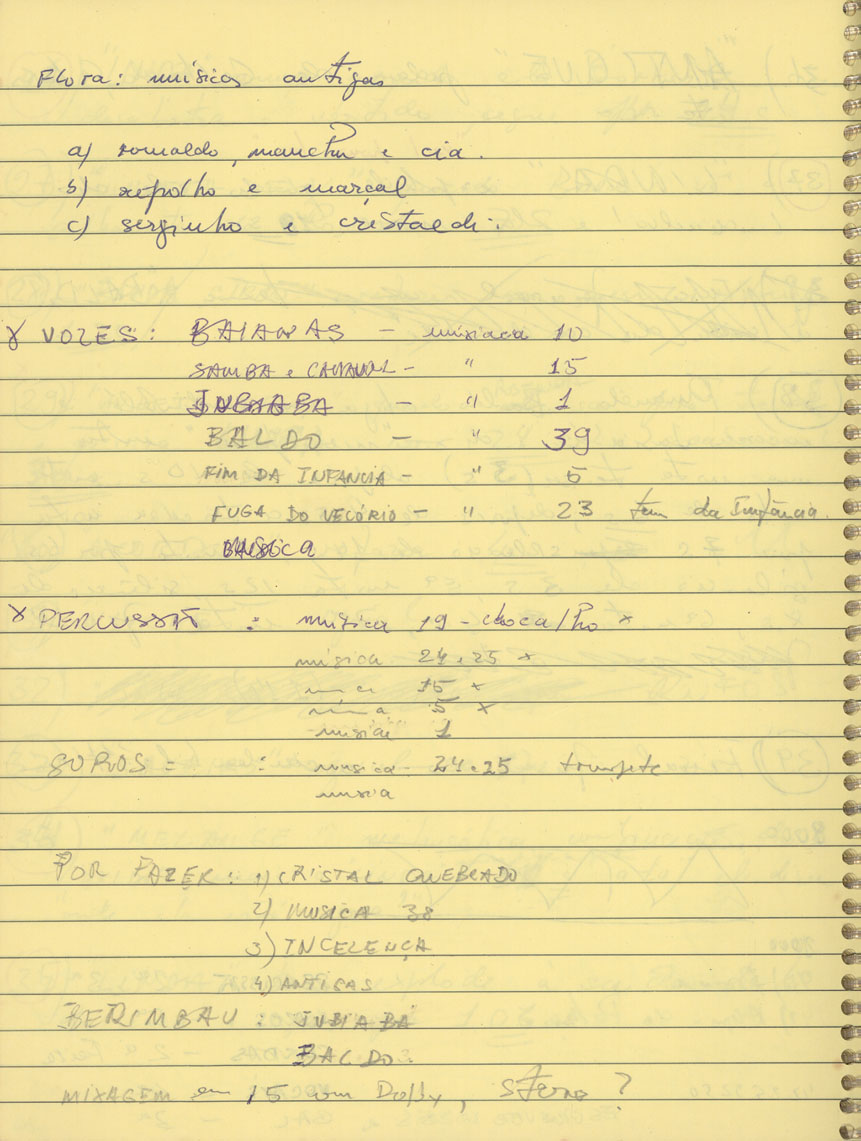 Flora: músicas antigas
a) romaldo, e cia.
b) e marçal
c) serginho e cristaldi.
VOZES: BAIANAS – música 10
SAMBA e CARNAVAL – " 15
JUBIABA – " 1
BALDO – " 39
FIM DA INFANCIA – " 5
FUGA DO VELÓRIO – " 23 tem da Infância.
MUSICA
x PERCUSSÃO : música 19 – chocalho x
música 24 e 25 x
15 x
5 x
música 1
SOPROS = : musica – 24 e 25 trompete
musica
POR FAZER: 1) CRISTAL QUEBRADO
2) MUSICA 38
3) INCELENÇA
4) ANTIGAS
BERIMBAU : JUBIABÁ
BALDO.
MIXAGEM em 15 com Dolby, Stereo?